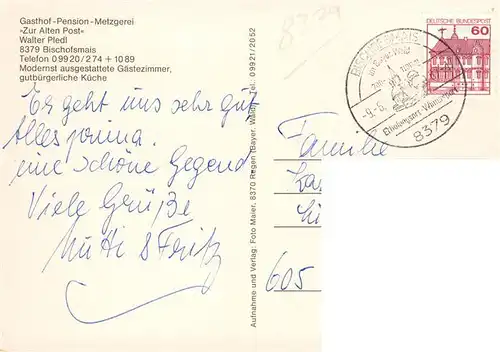 Gasthof-Pension-Metzgerei
»Zur Alten Post«
Walter Pledl
8379 Bischofsmais
Telefon 09920/274 + 1089
Modernst ausgestattete Gästezimmer,
gutbürgerliche Küche
Es geht uns sehr gut
Alles prima.
eine schöne Gegend
Viele Grüße
Mutti & Fritz
Aufnahme und Verlag: Foto Maier, 8370 Regen (Bayer. Wald), Tel.: 09921/2052
8379
DEUTSCHE BUNDESPOST
60
BISCHOFSMAIS
im Bayer. Wald
-9.6.
Erholungsort Wintersport
8379
Familie
605